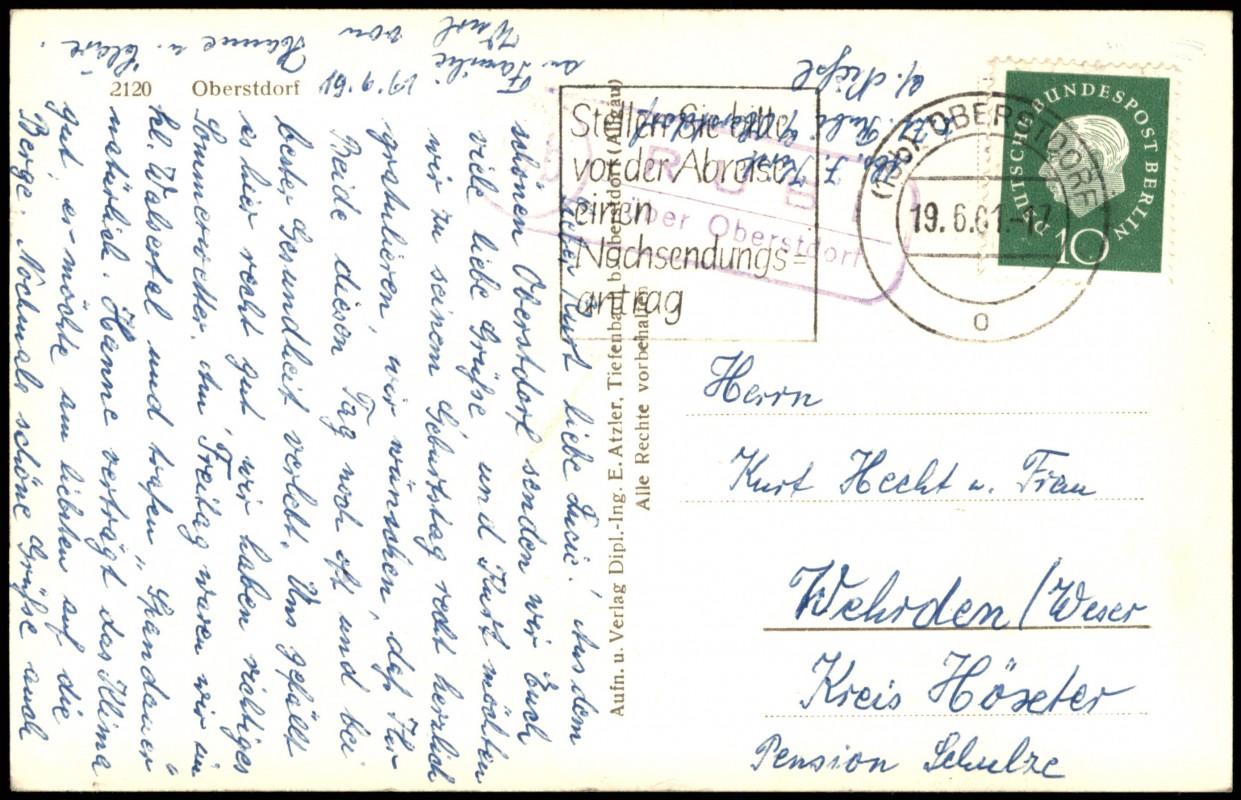 2120 Oberstdorf
19.6.61
Lieber Kurt, liebe Lucie! Aus dem
schönen Oberstdorf senden wir Euch
viele liebe Grüße und Kurt möchten
wir zu seinem Geburtstag recht herzlich
gratulieren, wir wünschen, daß Ihr
Beide diesen Tag noch oft und bei
bester Gesundheit verlebt. Uns gefällt
es hier recht gut, wir haben richtiges
Sommerwetter. Am Freitag waren wir im
kl. Walsertal und trafen „Spandauer"
natürlich. Hanne verträgt das Klima
gut, er möchte am liebsten auf die
Berge. Nochmals schöne Grüße auch
an Familie
Wurl von
Hanne u. Cläre.
Aufn. u. Verlag Dipl.-Ing. E. Atzler, Tiefenbach b. Oberstdorf (Allgäu)
Alle Rechte vorbehalten
Stellen Sie bitte
vor der Abreise
einen
Nachsendungs=
antrag
RUBI
über Oberstdorf
(13b) OBERSTDORF
19.6.61.-17
o
DEUTSCHE BUNDESPOST BERLIN
10
Herrn
Kurt Hecht u. Frau
Wehrden/Weser
Kreis Höxter
Pension Schulze